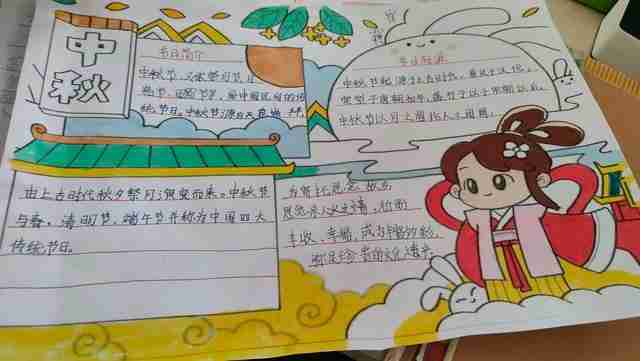 中秋
节日简介
中秋节,又称祭月节、
团圆节等,是中国民间的传
统节日。中秋节源自天象崇拜,
由上古时代秋夕祭月演变而来。中秋节
与春、清明节、端午节并称为中国四大
传统节日。
节日起源
中秋节起源于上古时代,普及于汉代,
定型于唐朝初年,盛行于以宋朝以后。
中秋节以月之圆兆人之团圆,
为寄托思念故乡,
思念亲人之情,祈盼
丰收、幸福,成为丰富多彩、
弥足珍贵的文化遗产。